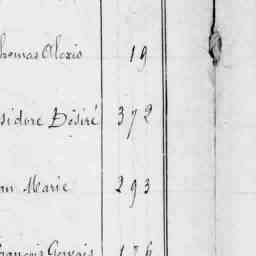 Thomas Alexis 19
Isidore Désiré 372
Marie 293
François Gervais 176